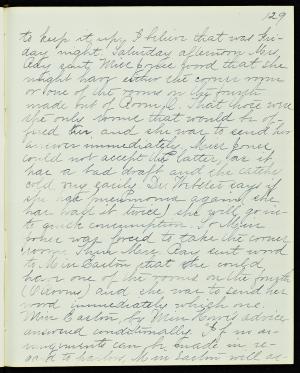 129
to keep it up, I believe that was Fri-
day night. Saturday afternoon Mrs.
Ray sent Miss Jones word that she
might have either the corner room
or one of the rooms on the fourth
made out of Room 2. That those were
the only rooms that would be of-
fered her, and she was to send her
answer immediately. Miss Jones
could not accept the latter, as it
has a bad draft and she catches
cold very easily. Dr. Webster says if
she has pneumonia again, (she
has had it twice) she will go in-
to quick consumption. So Miss
Jones was forced to take the corner
room. Then Mrs. Ray sent word
to Miss Easton that she could
have one of the rooms on the fourth
and she was to send her
word immediately which one.
Miss Easton by Miss advice
answered conditionally. "If no ar-
rangements can be made in re-
gard to Miss Easton will ac-